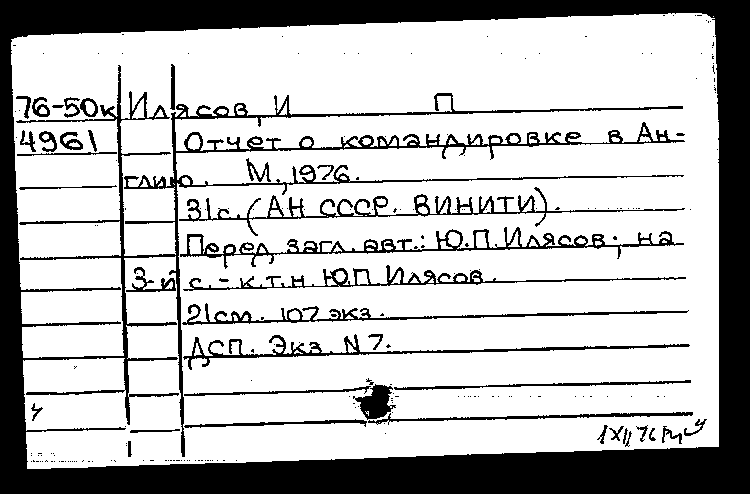 76-50к Илясов, И П
4961 Отчет о командировке в Ан-
глию. М., 1976.
31с. (АН СССР. ВИНИТИ).
Перед загл. авт.: Ю.П.Илясов; на
3-й с. - к.т.н. Ю.П.Илясов.
21см. 107 экз.
ДСП. Экз. N 7.
ч
1 XII 76